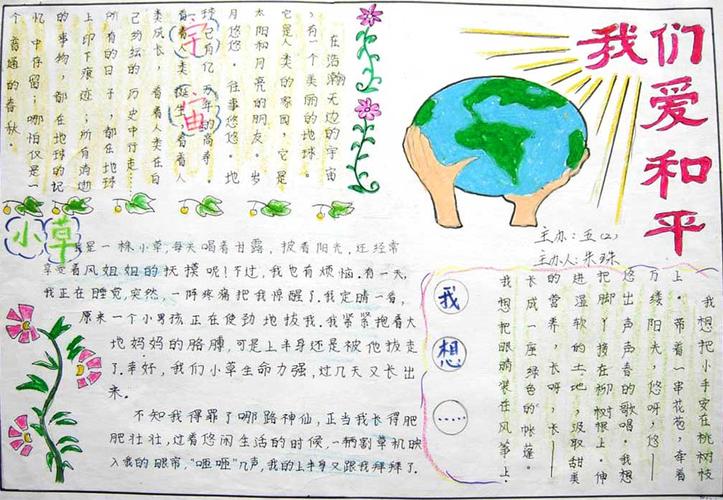 我们
爱
和
平
主办:五(2)
主办人:朱
宇宙
在浩瀚无边的宇宙
,有一个美丽的地球.
它是人类的家园,它是
太阳和月亮的朋友.岁
月悠悠.往事悠悠.地
球已有亿万年的高寿.
看着人类诞生,看着人
类成长,看着人类在自
己的历史中行走……
所有的日子,都在地球
上印下痕迹;所有消逝
的事物,都在地球的记
忆中存留;哪怕仅是一
个普通的春秋.
小草
我是一株小草,每天喝着甘露,披着阳光,还经常
享受着风姐姐的抚摸呢!不过,我也有烦恼.有一天,
我正在睡觉,突然,一阵疼痛把我惊醒了.我定睛一看,
原来一个小男孩正在使劲地拔我.我紧紧抱着大
地妈妈的胳膊,可是上半身还是被他拔走
了.幸好,我们小草生命力强,过几天又长出
来.
不知我得罪了哪路神仙,正当我长得肥
肥壮壮,过着悠闲生活的时候,一辆割草机映
入我的眼帘,"咂咂"几声,我的上半身又跟我拜拜了.
我想……
我想把小手安在桃树枝
上.带着一串花苞,牵着
万缕阳光,悠呀,悠——
悠出声声春的歌唱.我想
把脚丫接在柳树根上.伸
进湿软的土地,汲取甜美
的营养,长呀,长——
长成一座绿色的帐篷.
我想把眼睛装在风筝上.